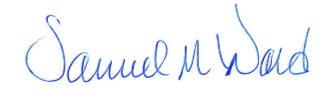 Samuel M Ward